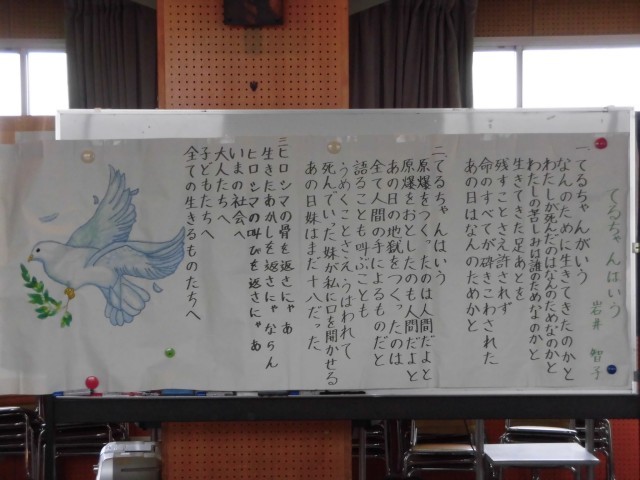 てるちゃんはいう
岩井 智子
一 てるちゃんがいう
なんのために生きてきたのかと
わたしが死んだのはなんのためなのかと
わたしの苦しみは誰のためなのかと
生きてきた足あとを
残すことさえ許されず
命のすべてが砕きこわされた
あの日はなんのためかと
二 てるちゃんはいう
原爆をつくったのは人間だよと
原爆をおとしたのも人間だよと
あの日の地獄をつくったのは
全て人間の手によるものだと
語ることも叫ぶことも
うめくことさえうばわれて
死んでいった妹が私に口を開かせる
あの日妹はまだ十八だった
三 ヒロシマの骨を返さにゃあ
生きたあかしを返さにゃならん
ヒロシマの叫びを返さにゃあ
いまの社会へ
大人たちへ
子どもたちへ
全ての生きるものたちへ